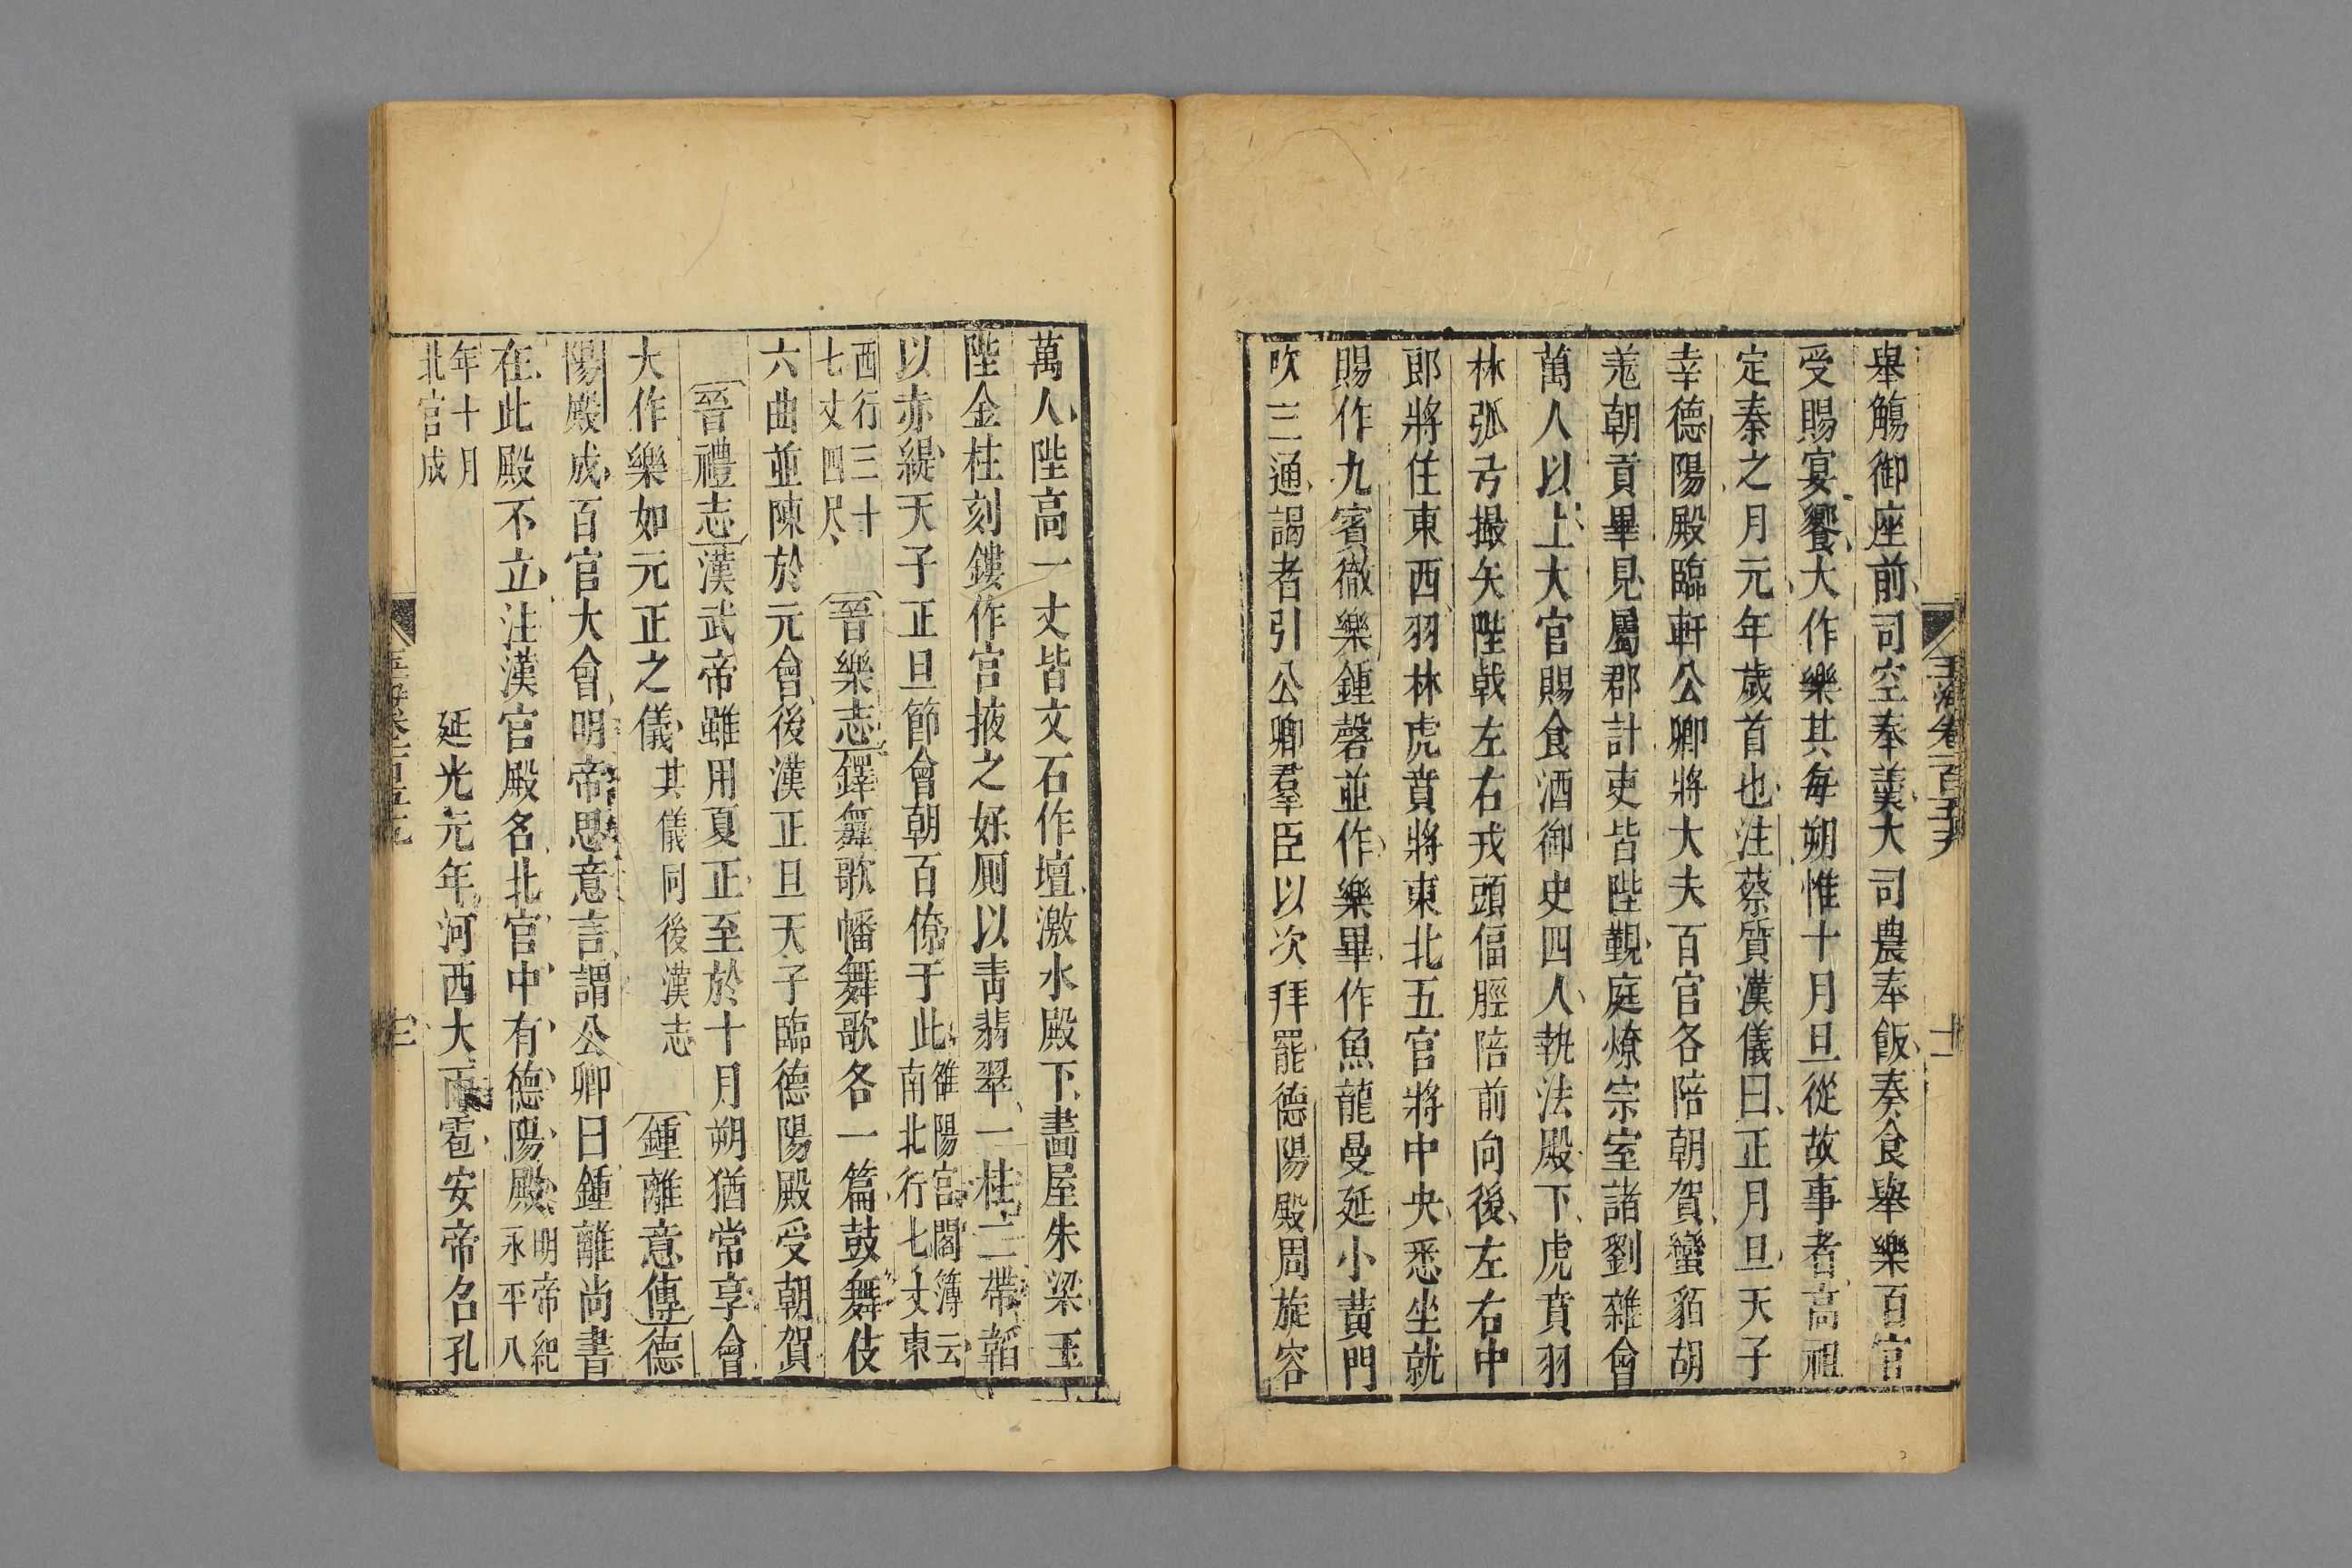 玉海卷一百五十九
十二
舉觴御座前司空奉羹大司農奉飯奏食舉樂百官
受賜宴饗大作樂其每朔惟十月旦從故事者高祖
定秦之月元年歲首也注蔡質漢儀曰正月旦天子
幸德陽殿臨軒公卿將大夫百官各陪朝賀蠻貊胡
羌朝貢畢見屬郡計吏皆陛覲庭燎宗室諸劉雜會
萬人以上大官賜食酒御史四人執法殿下虎賁羽
林弧弓撮矢陛戟左右戎頭偪脛陪前向後左右中
郎將住東西羽林虎賁將東北五官將中央悉坐就
賜作九賓徹樂鍾磬並作作樂畢作魚龍曼延小黃門
吹三通謁者引公卿羣臣以次拜罷德陽殿周旋容
萬人陛高一丈皆文石作壇激水殿下畫屋朱梁玉
陛金柱刻鏤作宫掖之好厠以青翡翠一柱三帶韜
以赤緹天子正旦節會朝百僚于此雒陽宮閣簿云
南北行七丈東
西行三十
七丈四尺晉樂志鐸舞歌幡舞歌各一篇鼓舞伎
六曲並陳於元會後漢正旦天子臨德陽殿受朝賀
晉禮志漢武帝雖用夏正至於十月朔猶常享會
大作樂如元正之儀其儀同後漢志鍾離意傳德
陽殿成百官大會明帝思意言謂公卿曰鍾離尚書
在此殿不立注漢宫殿名北宫中有德陽殿明帝紀
永平八
年十月
北宮成延光元年河西大雨雹安帝名孔